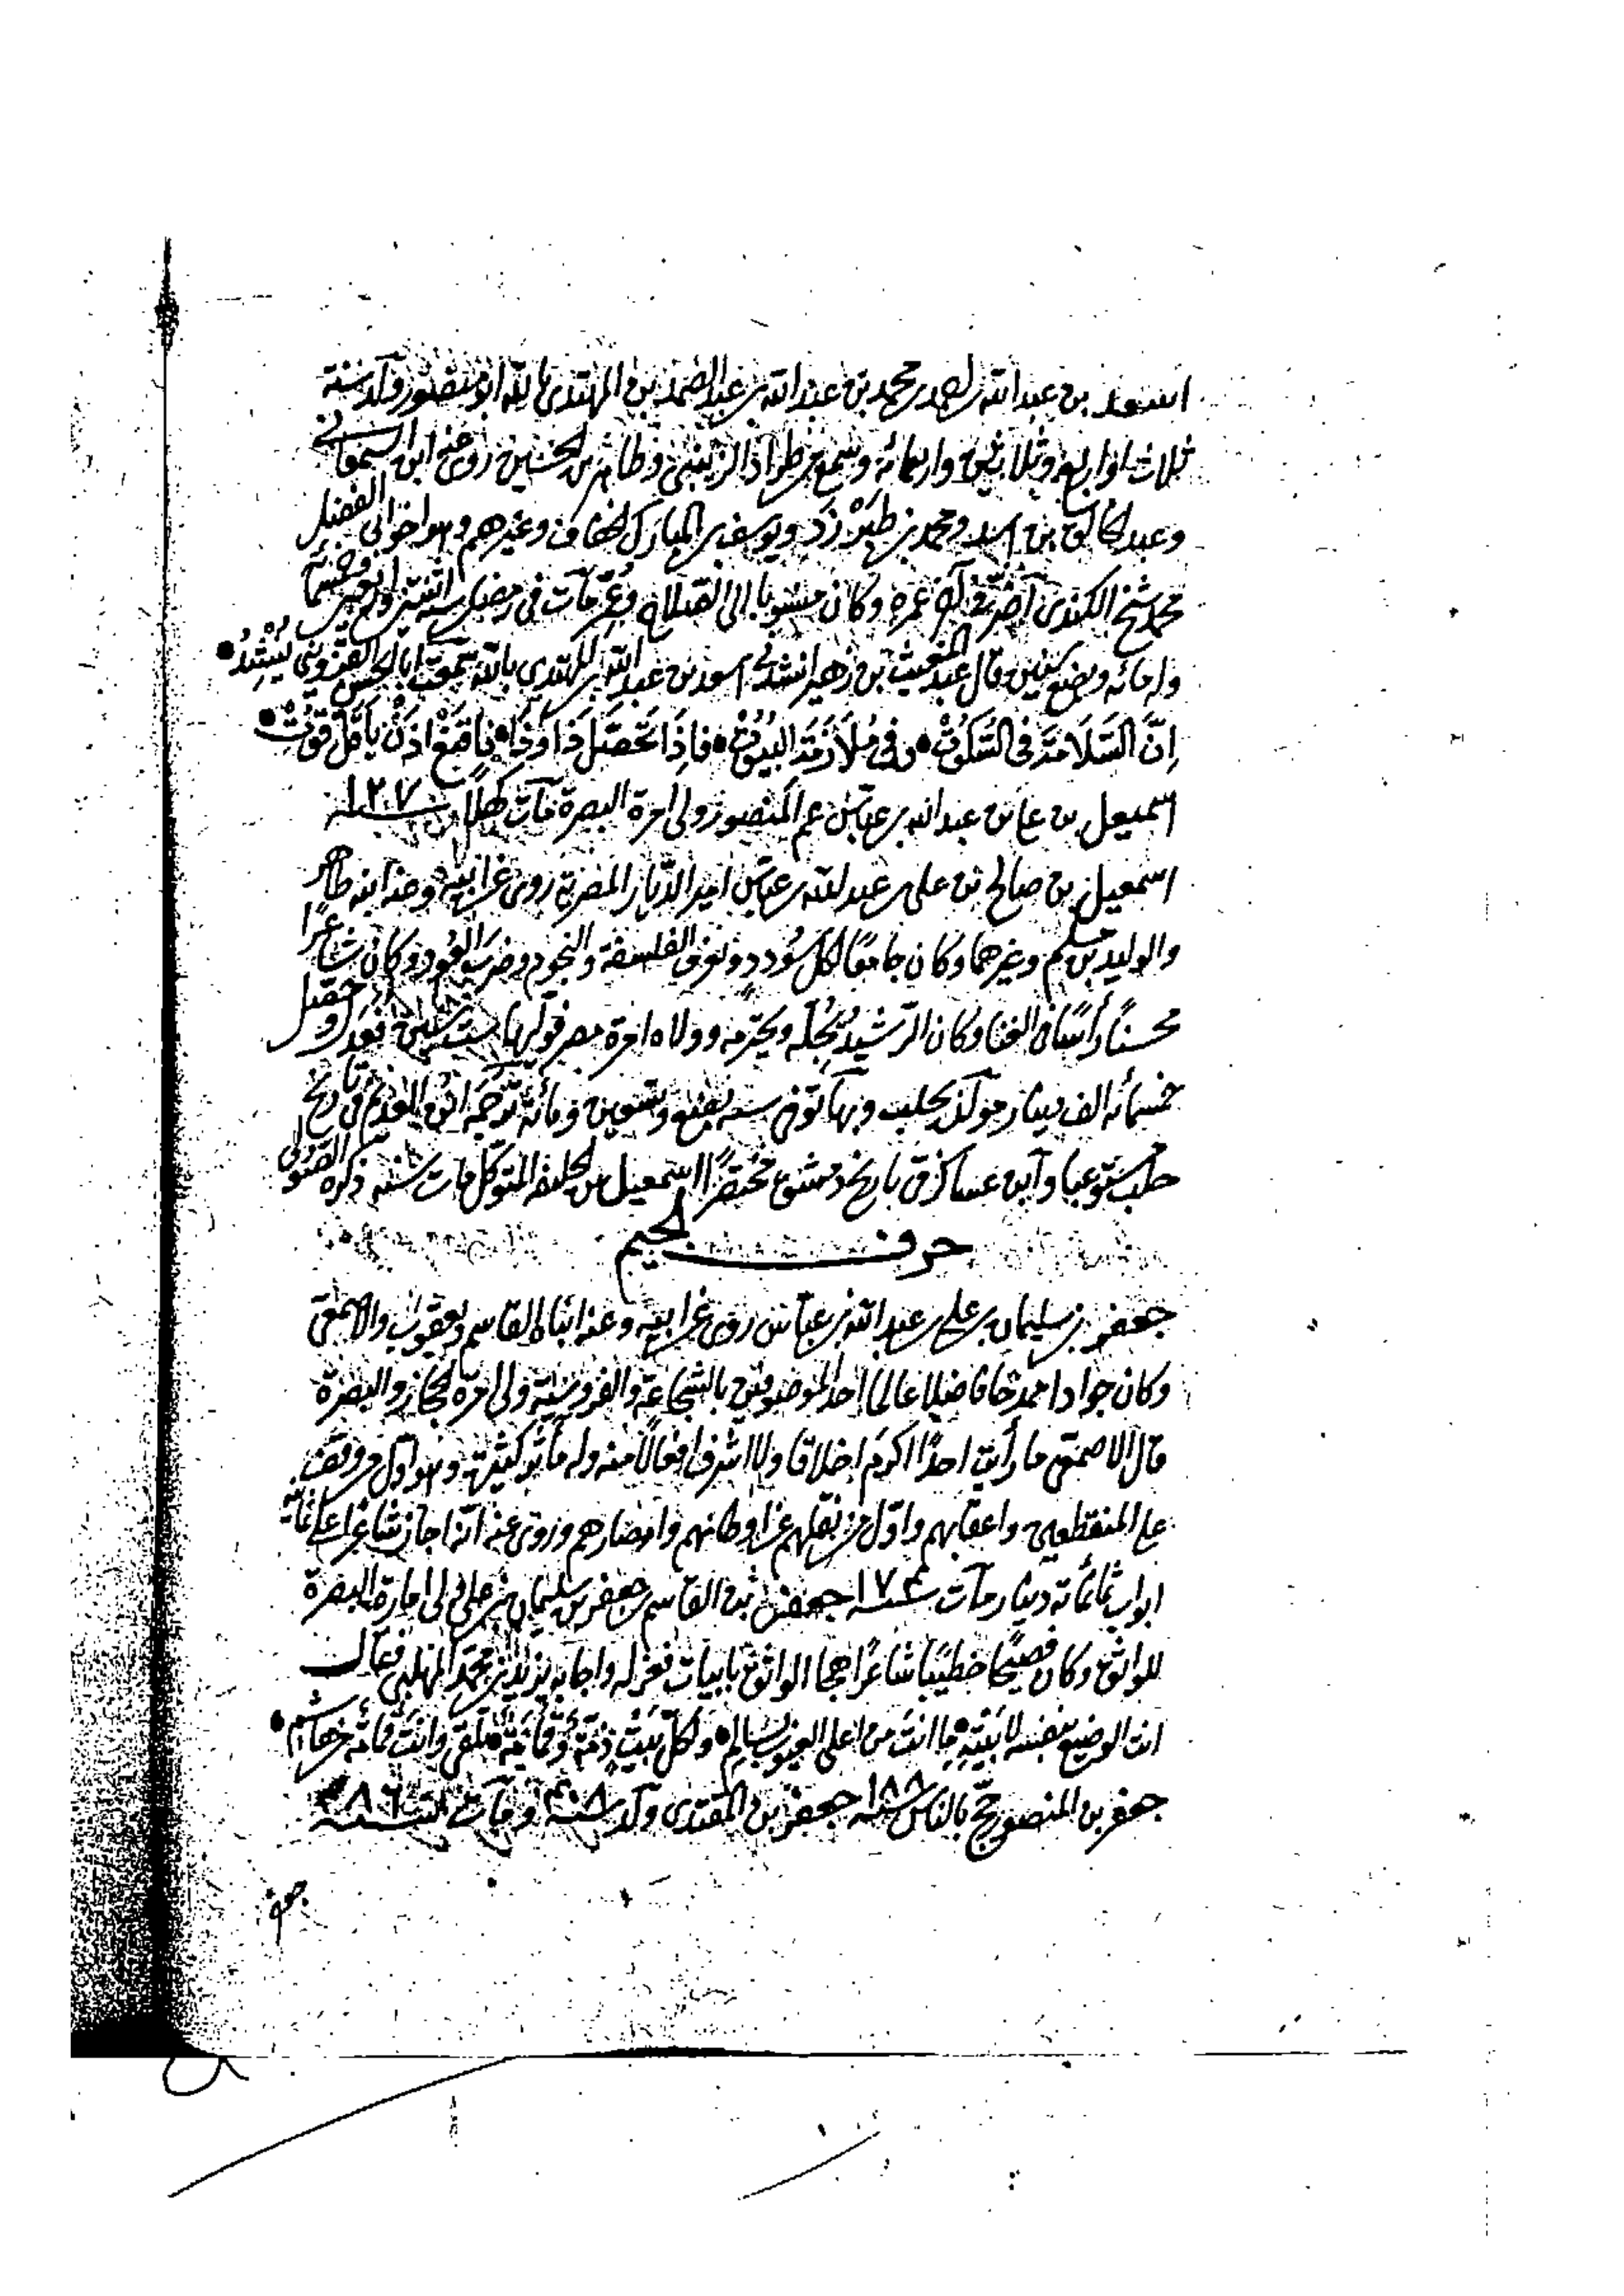 اسعد بن عبد الله بن احمد بن محمد بن عبد الله بن عبد الصمد بن المهتدى بالله ابو منصور ولد سنة
ثلاث او اربع وثلاثين واربعمائه وسمع من طراد الزينبى وطاهر بن الحسين روى عنه ابن السمعانى
وعبد الخالق بن اسد ومحمد بن طبرزد ويوسف بن المبارك الخفاف وغيرهم وهو اخو ابى الفضل
محمد شيخ الكندى اضر فى آخر عمره وكان منسوبا الى الصلاح وعمر مات فى رمضان سنة اثنتين واربعين وخمسمائة
وله مائه وبضع سنين وقال عبد المغيث بن زهير انشدنى اسعد بن عبد الله المهتدى بالله سمعت ابا الحسن القزوينى ينشد
اِنَّ السَّلَامَةَ فى السُّكُوتْ وفى مُلَازَمَةِ البُيُوتْ فاِذَا تَحَصَّلَ ذَا وذَا فاقنَعْ اذَنْ بأقَلّ قوت
اسمعيل بن على بن عبد الله بن عباس عم المنصور ولى امرة البصرة مات كهلا سنة ١٢٧
اسمعيل بن صالح بن على بن عبد الله بن عباس امير الديار المصرية روى عن ابيه وعنه ابنه طاهر
والوليد بن مسلم وغيرهما وكان جامعًا لكل سُودد ويعرف الفلسفة والنجوم وضرب العود وكان شاعرًا
محسنًا رأسًا فى الغنا وكان الرشيد يُجلّه ويحترمه وولاه امرة مصر فوليها ست سنين فعدل وحصل
خمسمائه الف دينار مولده بحلب وبها توفى سنه بضع وتسعين ومائه ترجمه ابن العديم فى تاريخ
حلب مستوعبا وابن عساكر فى تاريخ دمشق مختصرًا اسمعيل بن الخليفه المتوكل مات سنه ذكره الصولى
حرف الجيم
جعفر بن سليمان بن على بن عبد الله بن عباس روى عن ابيه وعنه ابناه القاسم ويعقوب والاصمعى
وكان جوادا ممدحا فاضلا عالما احد الموصوفين بالشجاعة والفروسية ولى امرة الحجاز والبصرة
قال الاصمعى ما رأيت احدًا اكرم اخلاقا ولا اشرف افعالا منه وله مآثر كثيرة وهو اول من وقف
على المنقطعين واعقابهم واول من نقلهم عن اوطانهم وامصارهم وروى عنه انه اجاز شاعرا على ثمانية
ابيات ثمانمائة دينار مات سنه ١٧٤ جعفر بن القاسم بن جعفر بن سليمان بن على ولى امارة البصرة
للواثق وكان فصيحًا خطيبًا شاعرًا هجا الواثق بابيات فعزله واجابه يزيد بن محمد المهلبى فقال
انت الوضيع بنفسه لا بَيْتِهِ ما انت من اعلى العيوب بسالم ولكل بَيْت دمنة وقمامة تلقى وانت قمامة من هاشم
جعفر بن المنصور حج بالناس سنه ١٨٨ جعفر بن المقتدى ولد سنه ٤٨٠ ومات سنه ٤٨٦
جعفر